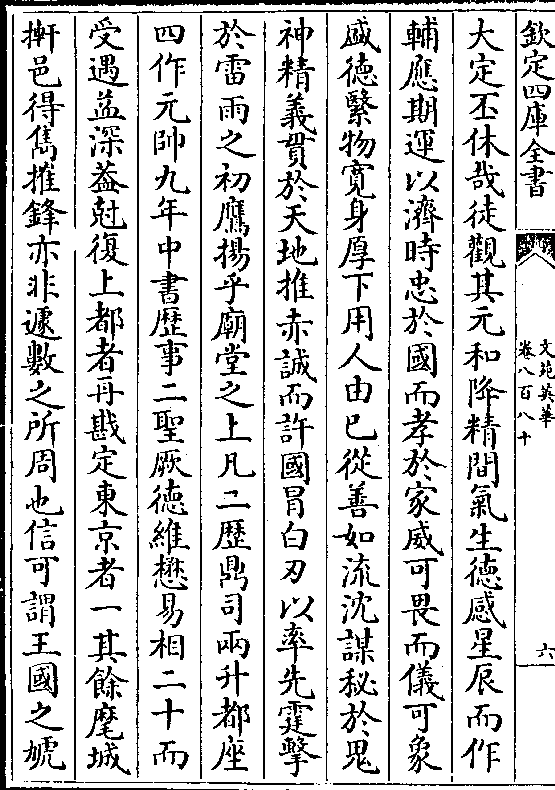 欽定四庫全書
文苑英華
卷八百八十
六
大定丕休哉徒觀其元和降精間氣生德感星辰而作
輔應期運以濟時忠於國而孝於家威可畏而儀可象
盛德緊物寛身厚下用人由已從善如流沈謀秘於鬼
神精義貫於天地推赤誠而許國冒白刃以率先霆擊
於雷雨之初鷹揚乎廟堂之上凡二歴鼎司兩升都座
四作元帥九年中書歴事二聖厥德維懋易相二十而
受遇益深葢尅復上都者再戡定東京者一其餘麾城
搟邑得雋摧鋒亦非遽數之所周也信可謂王國之虓